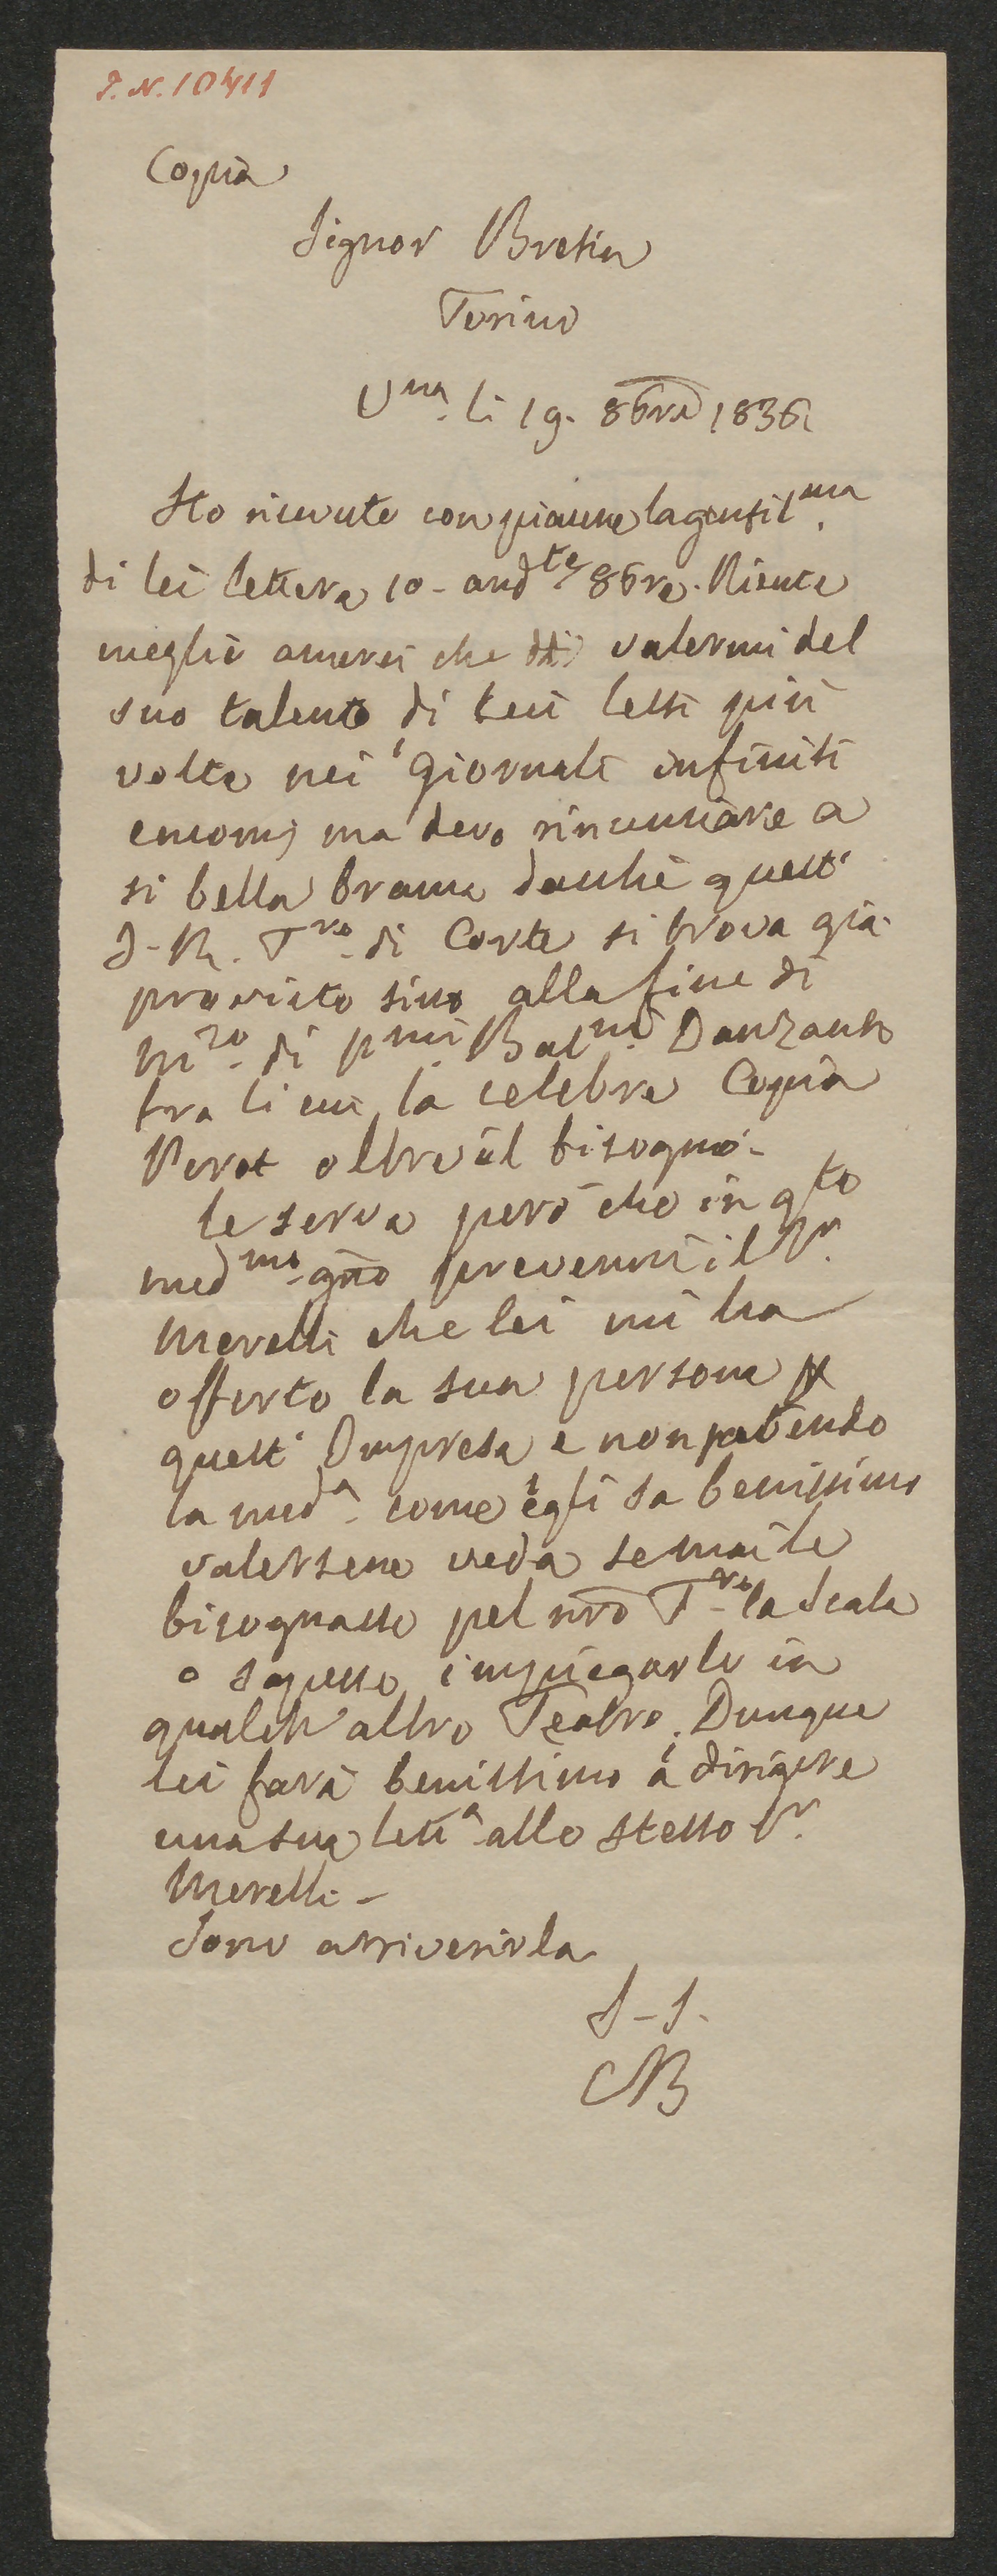 I. N. 10411
Copia
Signor Bretin
Torino
Vna. li 19. 8bre 1836
Ho ricevuto con piacere la gentilma.
di lei lettera 10 - andte 8bre. Niente
meglio amerei che di valermi del
suo talento di lessi più
volte nei Giornali infiniti
encomj ma devo rinunciare a
si bella brama dachè quest'
I-R. Tro. di Corte si trova già
provisto sino alla fine di
Mzo. di pmi. Balni. Danzanti
tra li cui la celebre Copia
Perot oltre il bisogno.-
Le serva però che in qto
medmo. gno prevenni il Sr.
Merelli che lei mi ha
offerto la sua persona p
quest' Impresa e non potendo
la meda. come egli sa benissimo
valersene veda se mai le
bisognasse pel nro Tro. la Scala
o sapesse impiegarlo in
qualch' altro Teatro. Dunque
lei farà benissimo a dirigere
una sua letta allo stesso Sr.
Merelli -
Sono a riverirla
S-S-
CB